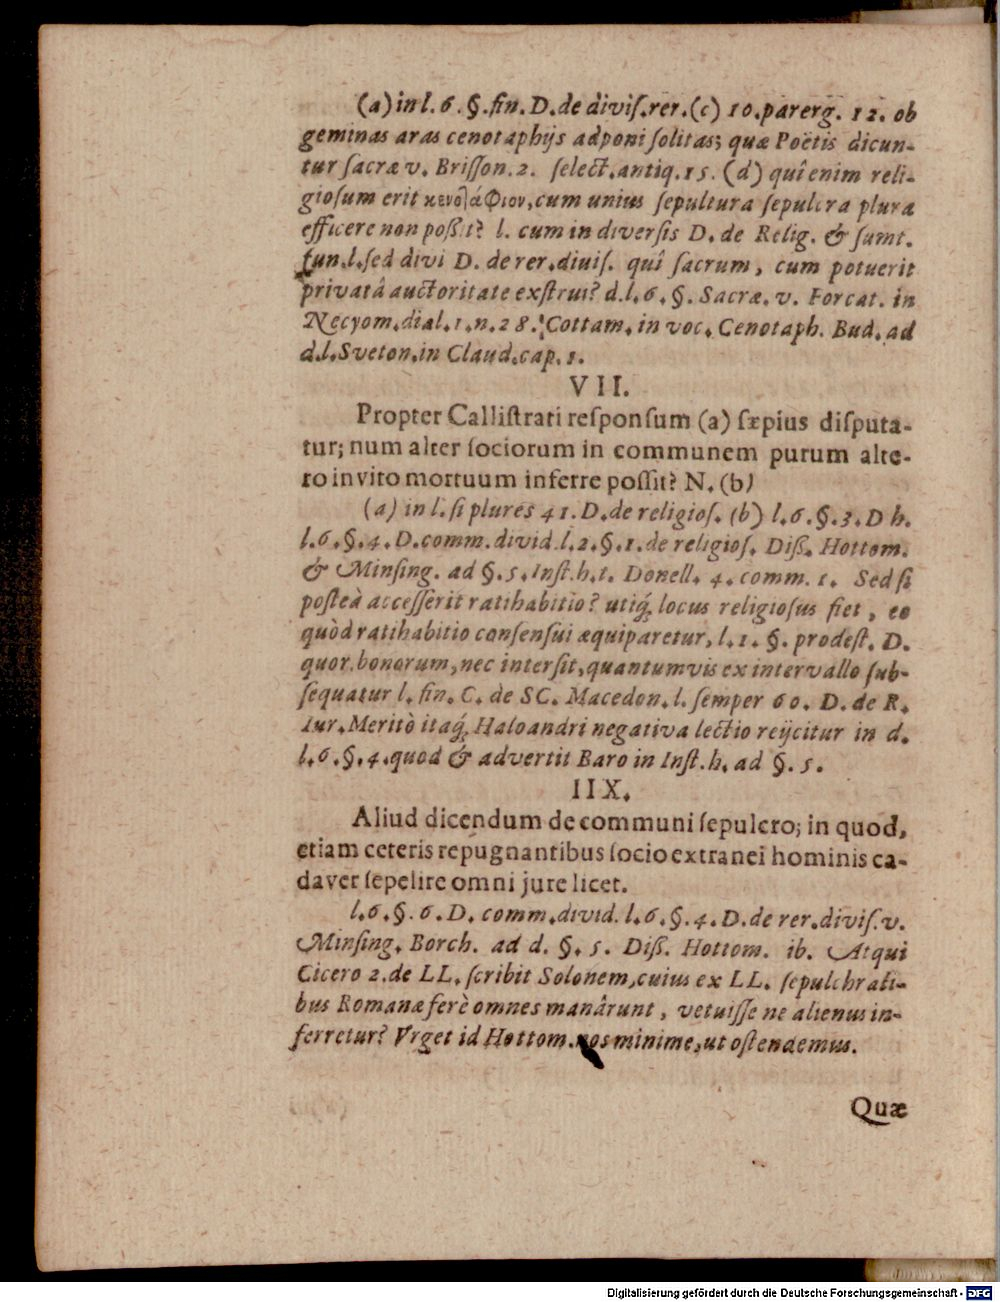 (a) in l. 6. §. fin. D. de divis. rer. (c) 10. parerg. 12. ob
geminas aras cenotaphijs adponi solitas; quæ Poëtis dicun-
tur sacræ v. Brisson. 2. select. antiq. 15. (d) quî enim reli-
giosum erit κενοτάφιον, cum unius sepultura sepulcra plura
efficere non poßit? l. cum in diversis D. de Relig. & sumt.
fun. l. sed divi D. de rer. diuis. quî sacrum, cum potuerit
privatâ auctoritate exstrui? d. l. 6. §. Sacræ. v. Forcat. in
Necyom. dial. 1. n. 28. Cottam. in voc. Cenotaph. Bud. ad
d. l. Sveton. in Claud. cap. 1.
VII.
Propter Callistrati responsum (a) sæpius disputa-
tur; num alter sociorum in communem purum alte-
ro invito mortuum inferre possit? N. (b)
(a) in l. si plures 41. D. de religios. (b) l. 6. §. 3. D h.
l. 6. §. 4. D. comm. divid. l. 2. §. 1. de religios. Diß. Hottom.
& Minsing. ad §. 5. Inst. h. t. Donell. 4. comm. 1. Sed si
posteà accesserit ratihabitio? utiq́; locus religiosus fiet, eo
quòd ratihabitio consensui æquiparetur, l. 1. §. prodest. D.
quor. bonorum, nec intersit, quantumvis ex intervallo sub-
sequatur l. fin. C. de SC. Macedon. l. semper 60. D. de R.
Iur. Meritò itaq́; Haloandri negativa lectio reijcitur in d.
l. 6. §. 4. quod & advertit Baro in Inst. h. ad §. 5.
IIX.
Aliud dicendum de communi sepulcro; in quod,
etiam ceteris repugnantibus socio extranei hominis ca-
daver sepelire omni jure licet.
l. 6. §. 6. D. comm. divid. l. 6. §. 4. D. de rer. divis. v.
Minsing. Borch. ad d. §. 5. Diß. Hottom. ib. Atqui
Cicero 2. de LL. scribit Solonem, cuius ex LL. sepulchrali-
bus Romanæ ferè omnes manârunt, vetuisse ne alienus in-
ferretur? Vrget id Hottom. nos minime, ut ostendemus.
Quæ
Digitalisierung gefördert durch die Deutsche Forschungsgemeinschaft - DFG